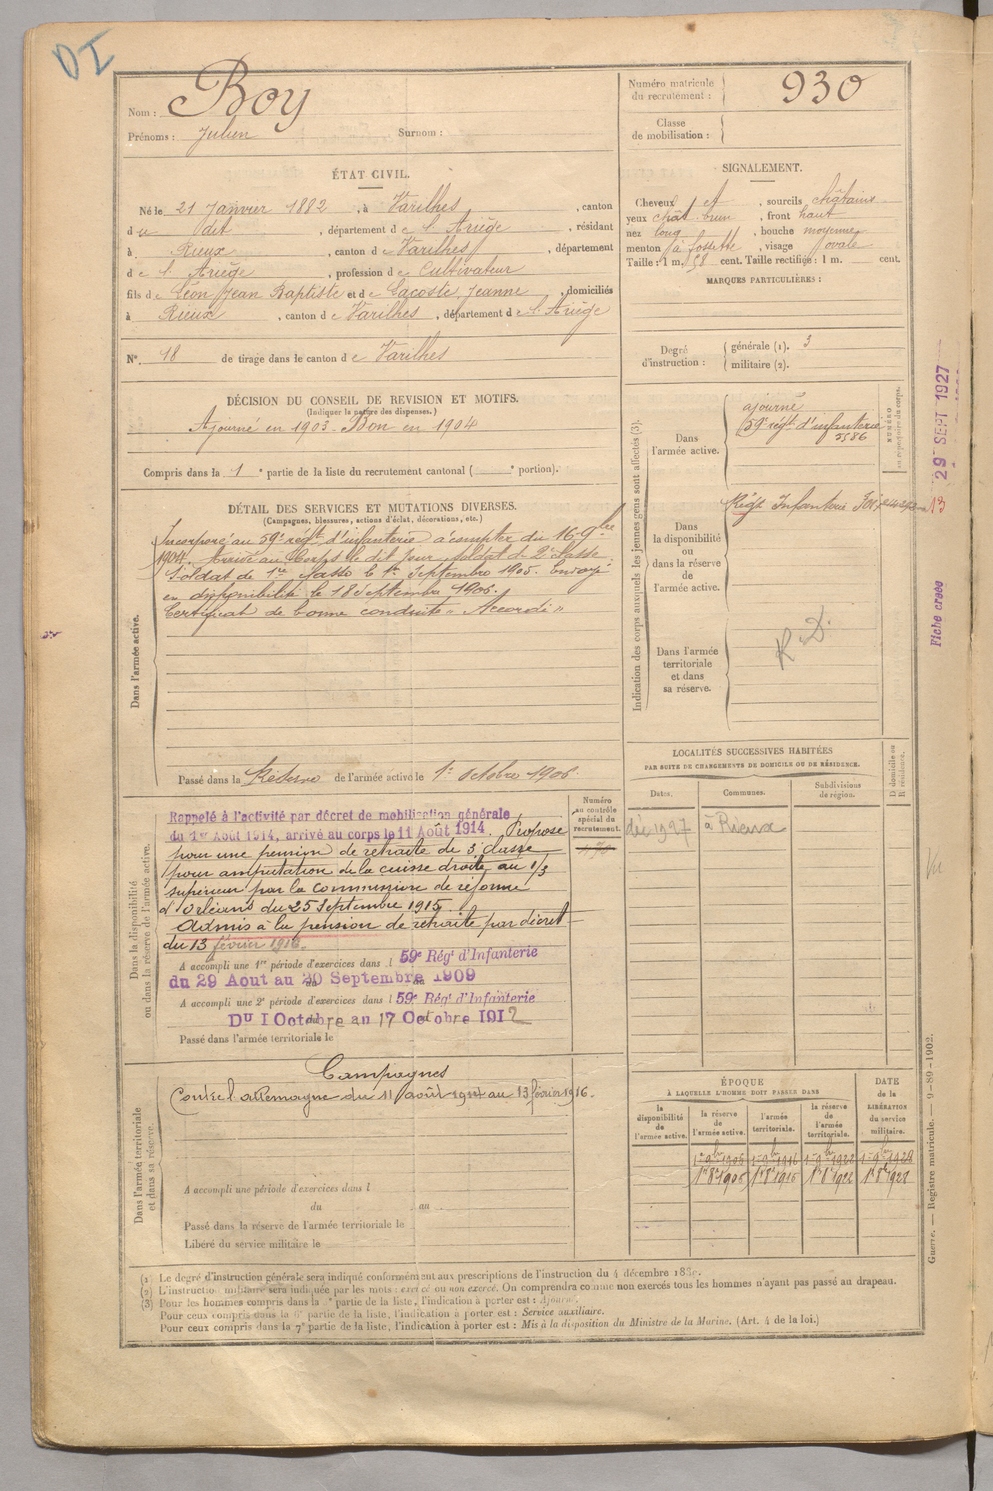 DI
Nom : Boy
Prénoms : Julien Surnom :
Numéro matricule du recrutement : 930
Classe de mobilisation :
ÉTAT CIVIL.
Né le 21 Janvier 1882, à Varilhes, canton
du dit, département de l'Ariège, résidant
à Rieux, canton de Varilhes, département
de l'Ariège, profession de Cultivateur
fils de Léon Jean Baptiste et de Lacoste Jeanne, domiciliés
à Rieux, canton de Varilhes, département de l'Ariège
N° 18 de tirage dans le canton de Varilhes
SIGNALEMENT.
Cheveux et, sourcils châtains
yeux chat. brun, front haut
nez long, bouche moyenne
menton à fossette, visage ovale
Taille : 1 m. 58 cent. Taille rectifiée : 1 m. cent.
MARQUES PARTICULIÈRES :
Degré d'instruction : générale (1). 3
militaire (2).
DÉCISION DU CONSEIL DE REVISION ET MOTIFS.
(Indiquer la nature des dispenses.)
Ajourné en 1903 - Bon en 1904
Compris dans la 1e partie de la liste du recrutement cantonal ( e portion).
DÉTAIL DES SERVICES ET MUTATIONS DIVERSES.
(Campagnes, blessures, actions d'éclat, décorations, etc.)
Dans l'armée active.
Incorporé au 59e régt d'infanterie à compter du 16 9bre
1904. Arrivé au Corps le dit jour, soldat de 2e classe.
Soldat de 1re classe le 1er Septembre 1905. Envoyé
en disponibilité le 18 Septembre 1906.
Certificat de bonne conduite "Accordé"
Passé dans la Réserve de l'armée active le 1er octobre 1906.
Indication des corps auxquels les jeunes gens sont affectés (3).
NUMÉRO au répertoire du corps.
Dans l'armée active.
ajourné
59e régt d'infanterie
5586
Dans la disponibilité ou dans la réserve de l'armée active.
Régt Infanterie Foix
13
Dans l'armée territoriale et dans sa réserve.
R.D.
29 SEPT 1927
Fiche créée
LOCALITÉS SUCCESSIVES HABITÉES
PAR SUITE DE CHANGEMENTS DE DOMICILE OU DE RÉSIDENCE.
Dates.
Communes.
Subdivisions de région.
D domicile ou R résidence.
déc 1927 à Rieux
Vu
Dans la disponibilité ou dans la réserve de l'armée active.
Numéro au contrôle spécial du recrutement.
Rappelé à l'activité par décret de mobilisation générale
du 1er Août 1914, arrivé au corps le 11 Août 1914. Proposé
pour une pension de retraite de 3e classe
pour amputation de la cuisse droite au 1/3
supérieur par la Commission de réforme
d'Orléans du 25 Septembre 1915.
Admis à la pension de retraite par décret
du 13 février 1916.
A accompli une 1re période d'exercices dans l 59e Régt d'Infanterie
du 29 Aout au 20 Septembre 1909
A accompli une 2e période d'exercices dans l 59e Régt d'Infanterie
Du 1 Octobre au 17 Octobre 1912
Passé dans l'armée territoriale le
Dans l'armée territoriale et dans sa réserve.
Campagnes
Contre l'allemagne du 11 août 1914 au 13 février 1916.
A accompli une période d'exercices dans l
du au
Passé dans la réserve de l'armée territoriale le
Libéré du service militaire le
ÉPOQUE
À LAQUELLE L'HOMME DOIT PASSER DANS
la disponibilité de l'armée active.
la réserve de l'armée active.
l'armée territoriale.
la réserve de l'armée territoriale.
DATE de la LIBÉRATION du service militaire.
1er 9bre 1906 1er 9bre 1916 1er 9bre 1922 1er 9bre 1928
1er 8bre 1906 1er 8bre 1916 1er 8bre 1922 1er 8bre 1928
Guerre. — Registre matricule. — 9-89-1902.
(1) Le degré d'instruction générale sera indiqué conformément aux prescriptions de l'instruction du 4 décembre
(2) L'instruction militaire sera indiquée par les mots : exercé ou non exercé. On comprendra comme non exercés tous les hommes n'ayant pas passé au drapeau.
(3) Pour les hommes compris dans la partie de la liste, l'indication à porter est : Ajourné.
Pour ceux compris dans la 6e partie de la liste, l'indication à porter est : Service auxiliaire.
Pour ceux compris dans la 7e partie de la liste, l'indication à porter est : Mis à la disposition du Ministre de la Marine. (Art. 4 de la loi.)